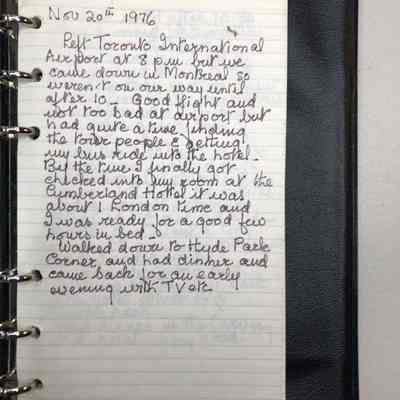 Nov 20th 1976
Left Toronto International
Airport at 8 p.m but we
came down in Montreal so
weren't on our way until
after 10 - Good flight and
not too bad at airport but
had quite a time finding
the tour people & getting
my bus ride into the hotel -
By the time I finally got
checked into my room at the
Cumberland Hotel it was
about 1 London time and
I was ready for a good few
hours in bed -
Walked down to Hyde Park
Corner and had dinner and
came back for an early
evening with TV etc